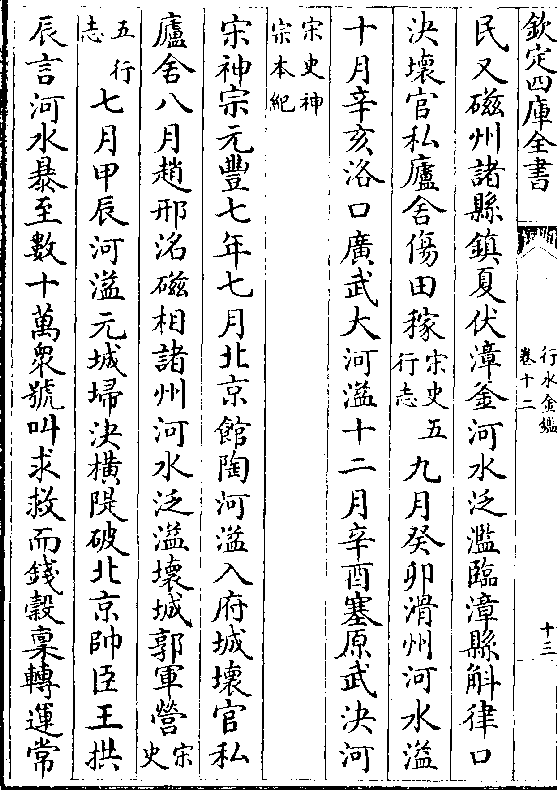 欽定四庫全書
行水金鑑
卷十二
十三
民又磁州諸縣鎮夏伏漳釜河水泛濫臨漳縣斛律口
決壞官私廬舍傷田稼宋史五行志九月癸卯滑州河水溢
十月辛亥洛口廣武大河溢十二月辛酉塞原武決河
宋史神宗本紀
宋神宗元豐七年七月北京館陶河溢入府城壞官私
廬舍八月趙邢洺磁相諸州河水泛溢壞城郭軍營宋史
五行志七月甲辰河溢元城埽決橫隄破北京帥臣王拱
辰言河水暴至數十萬衆號叫求救而錢糓稟轉運常